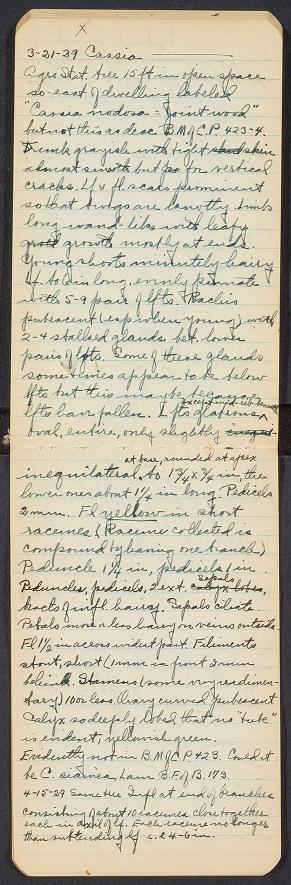 X
3-21-29 Cassia
Agri Stat. tree 15 ft in open space
so-east of dwelling labeled
"Cassia nodosa = Joint wood"
but not this as desc B.M.&C.P. 423-4.
Trunk grayish with tight skin
almost smooth but for vertical
cracks. Lf & fl. scars prominent
so that twigs are knotty. Limbs
long wand-like with leafy
growth mostly at ends.
Young shoots minutely hairy
Lf. to in long, evenly pinnate
with 5-9 pair of lfts. Rachis
pubescent (esp when young) with
2-4 stalked glands bet. lower
pairs of lfts. Some of these glands
sometimes appear to be below
lfts but this may be because
lfts have fallen. Lfts glabrous,
oval, entire, only slightly
at base, rounded at apex
inequilateral, to 1¾ x ¾ in, the
lower ones about 1¼ in long. Pedicels
2 mm. Fl yellow in short
racemes (Raceme collected is
compound by having one branch)
Peduncle 1¼ in, pedicels 1 in.
Sepals
Peduncles, pedicels, 2 ext. calyx lobes,
bracts of infl hairy. Sepals ciliate.
Petals more or less hairy on veins outside.
Fl 1½ in across widest part. Filaments
short, short (1mm in front 2mm
behind. Stamens (some very rudimen-
tary) 10 or less. Ovary curved pubescent
Calyx so deeply lobed that no "tube"
is evident, yellowish green.
Evidently not in B.M.&C.P. 423. Could it
be C. siamea, Lam B.F.of B. 173.
4-15-29 Same tree Infl at end of branches
consisting of about 10 racemes close together
each in axil of lf. Each raceme no longer
than subtending lf i.e. 4-6 in.